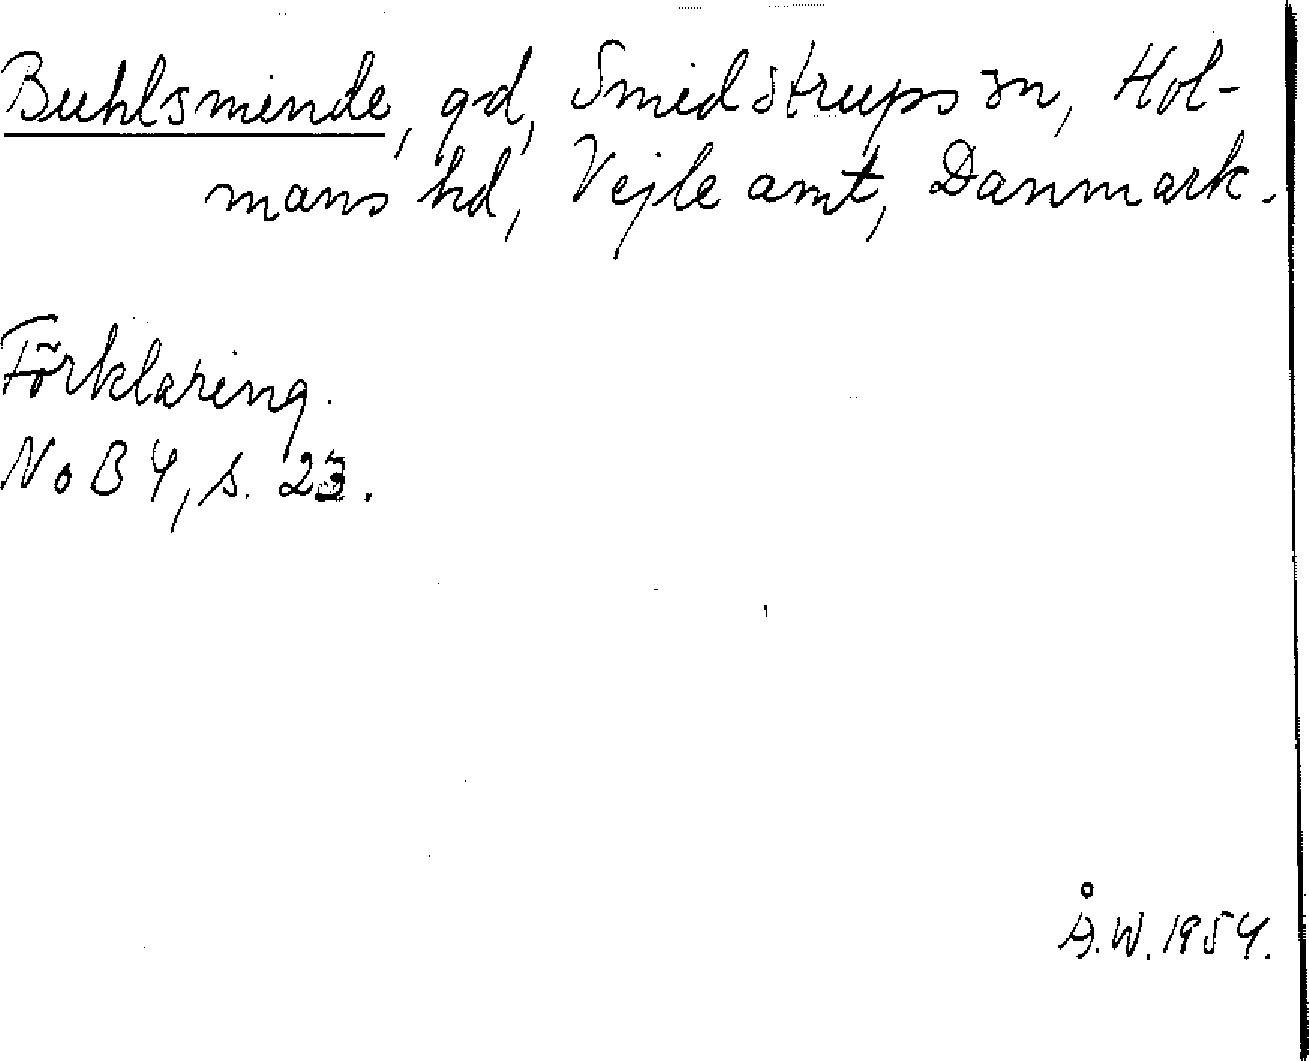 Buhlsminde, gd, Smidstrups sn, Hol-
mans hd, Vejle amt, Danmark.
Förklaring.
NoB 4, s. 23.
Å.W. 1954.